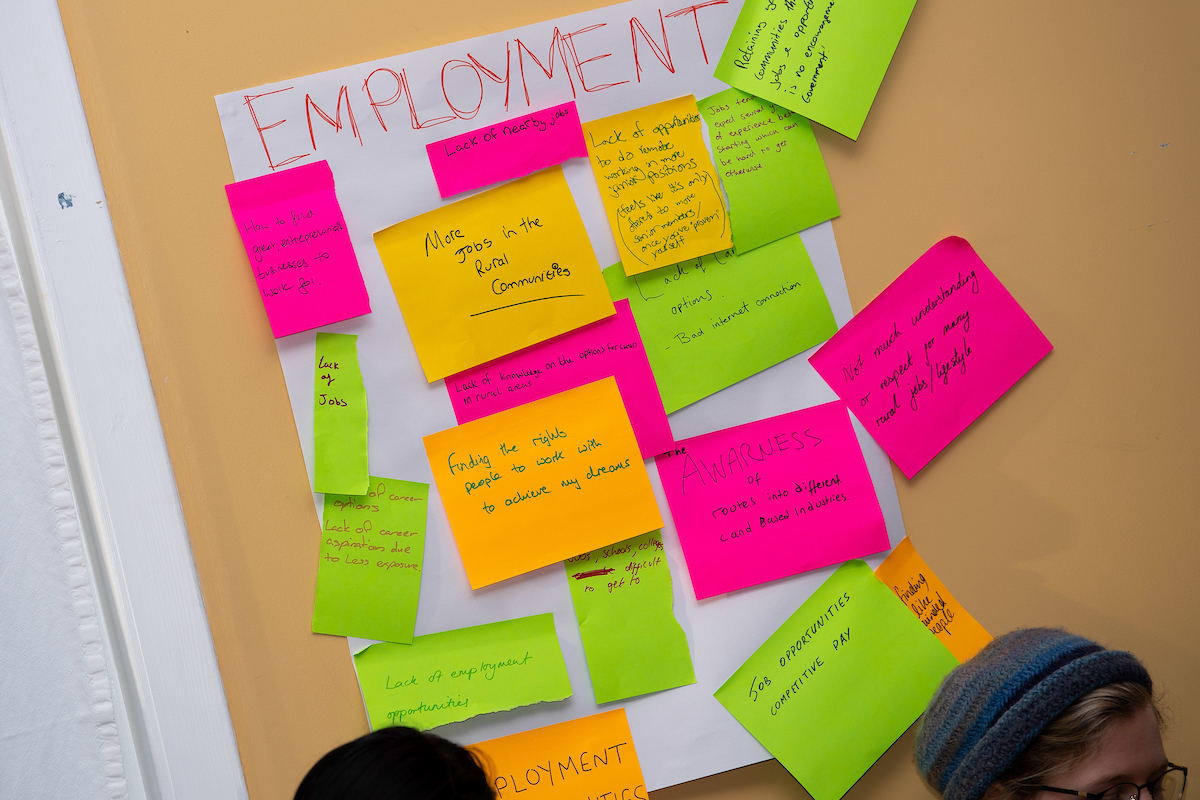 EMPLOYMENT
Retaining
communities
jobs & opportuni
is no encouragement
Government!
Lack of nearby jobs
Lack of opportunities
to do remote
working in more
junior positions
(feels like it's only
to more
senior members/
once you've proven
yourself)
Jobs
expect several
of experience
starting which can
be hard to get
otherwise.
How to
businesses to
work for.
More
Jobs in the
Rural
Communities
Lack of
options.
- Bad internet connection
Not much understanding
or respect for many
rural jobs/lifestyle
Lack
of
Jobs
Lack of knowledge on the options for
in rural areas
Finding the rights
people to work with
to achieve my dreams
The
AWARNESS
of
routes into different
Land Based industries.
of career
options
Lack of career
aspiration due
to Less exposure.
Jobs, schools,
difficult
to get to
finding
like
minded
people
JOB OPPORTUNITIES
COMPETITIVE PAY
Lack of employment
opportunities
PLOYMENT